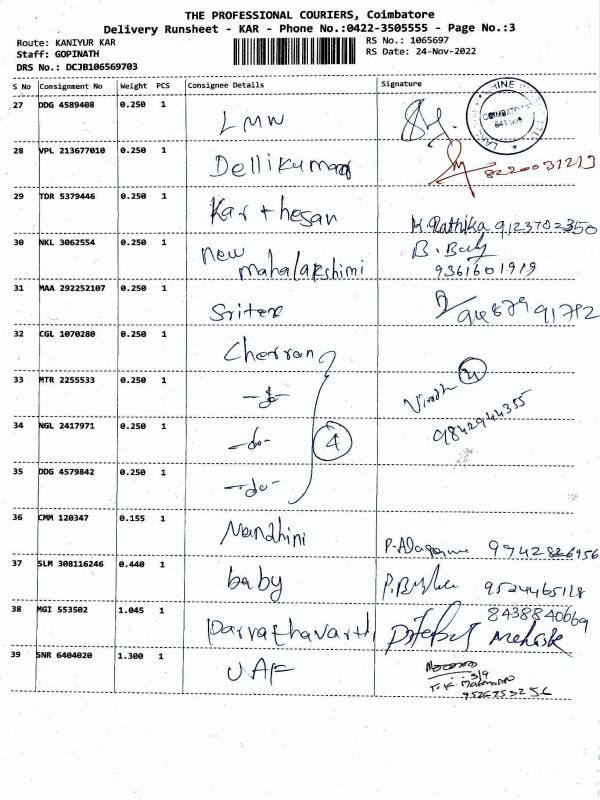 THE PROFESSIONAL COURIERS, Coimbatore
Delivery Runsheet - KAR - Phone No.:0422-3505555 - Page No.:3
Route: KANIYUR KAR
RS No.: 1065697
Staff: GOPINATH
RS Date: 24-Nov-2022
DRS No.: DCJB106569703
S No Consignment No Weight PCS Consignee Details Signature
27 DDG 4589408 0.250 1 LMW
COIMBATORE
28 VPL 213677010 0.250 1 Dellikumar 8220031213
29 TDR 5379446 0.250 1 Karthesan K.Rathika 9123702350
30 NKL 3062554 0.250 1 new mahalakshimi B. 9361601919
31 MAA 292252107 0.250 1 Sritex
32 CGL 1070280 0.250 1 Cherran
33 MTR 2255533 0.250 1 -do- Vinoth 4
34 NGL 2417971 0.250 1 -do- 4 9842944355
35 DDG 4579842 0.250 1 -do-
36 CMM 120347 0.155 1 Nandhini 9942826956
37 SLM 308116246 0.440 1 baby
38 MGI 553502 1.045 1 Parvathavarthi 8438840669
39 SNR 6404020 1.300 1 UAF